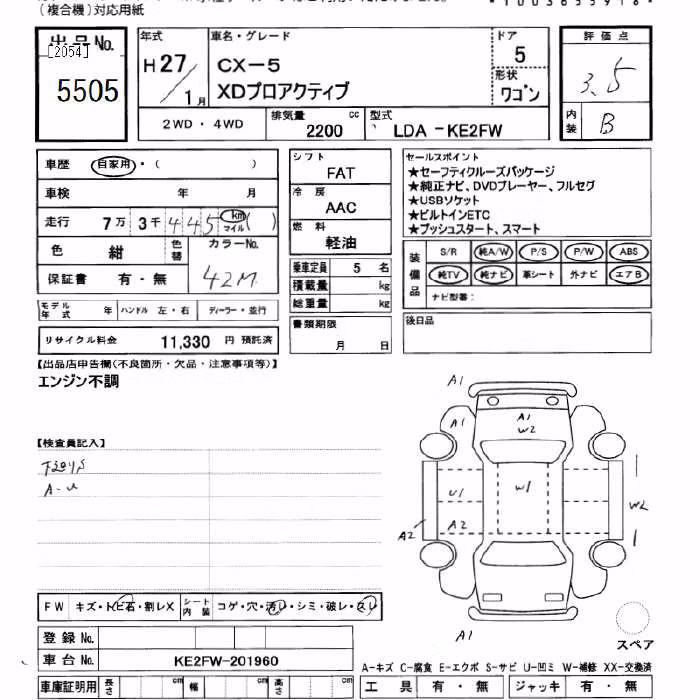 (複合機)対応用紙
出品No.
[2054]
5505
年式
H27/
1月
車名・グレード
CX-5
XDプロアクティブ
ドア
5
形状
ワゴン
評価点
3.5
内装
B
2WD・4WD
排気量
2200
cc
型式
LDA -KE2FW
車歴
自家用・(
)
車検
年
月
走行
7万
3千
445
km
マイル
( )
色
紺
色替
カラーNo.
42M
保証書
有・無
モデル年式
年
ハンドル
左・右
ディーラー・並行
リサイクル料金
11,330
円
預託済
シフト
FAT
冷房
AAC
燃料
軽油
乗車定員
5
名
積載量
kg
総重量
kg
書類期限
月
日
セールスポイント
★セーフティクルーズパッケージ
★純正ナビ、DVDプレーヤー、フルセグ
★USBソケット
★ビルトインETC
★プッシュスタート、スマート
装備品
S/R
純A/W
P/S
P/W
ABS
純TV
純ナビ
革シート
外ナビ
エアB
ナビ型番:
後日品
【出品店申告欄(不良箇所・欠品・注意事項等)】
エンジン不調
【検査員記入】
A-U
A1
A1
A1
W2
U1
W1
A2
A2
W2
A1
スペア
FW
キズ・トビ石・割レX
シート内装
コゲ・穴・汚レ・シミ・破レ・スレ
登録No.
車台No.
KE2FW-201960
A-キズ C-腐食 E-エクボ S-サビ U-凹ミ W-補修 XX-交換済
車庫証明用
長さ
cm
幅
cm
高さ
cm
工具
有・無
ジャッキ
有・無